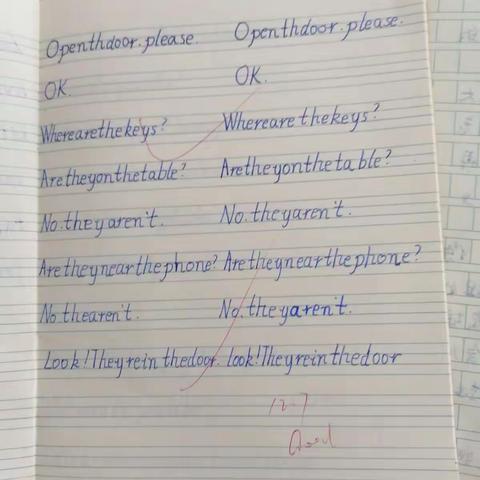 Openthdoor.please. Openthdoor.please.
OK. OK.
Wherearethekeys? Whereare thekeys?
Aretheyonthetable? Aretheyontheta ble?
No.they aren't. No.theyaren't.
Are theynearthephone? Are theynearthephone?
No thearen't. No.theyaren't.
Look!Theyrein thedoor. look!Theyreinthedoor
12.7
Good